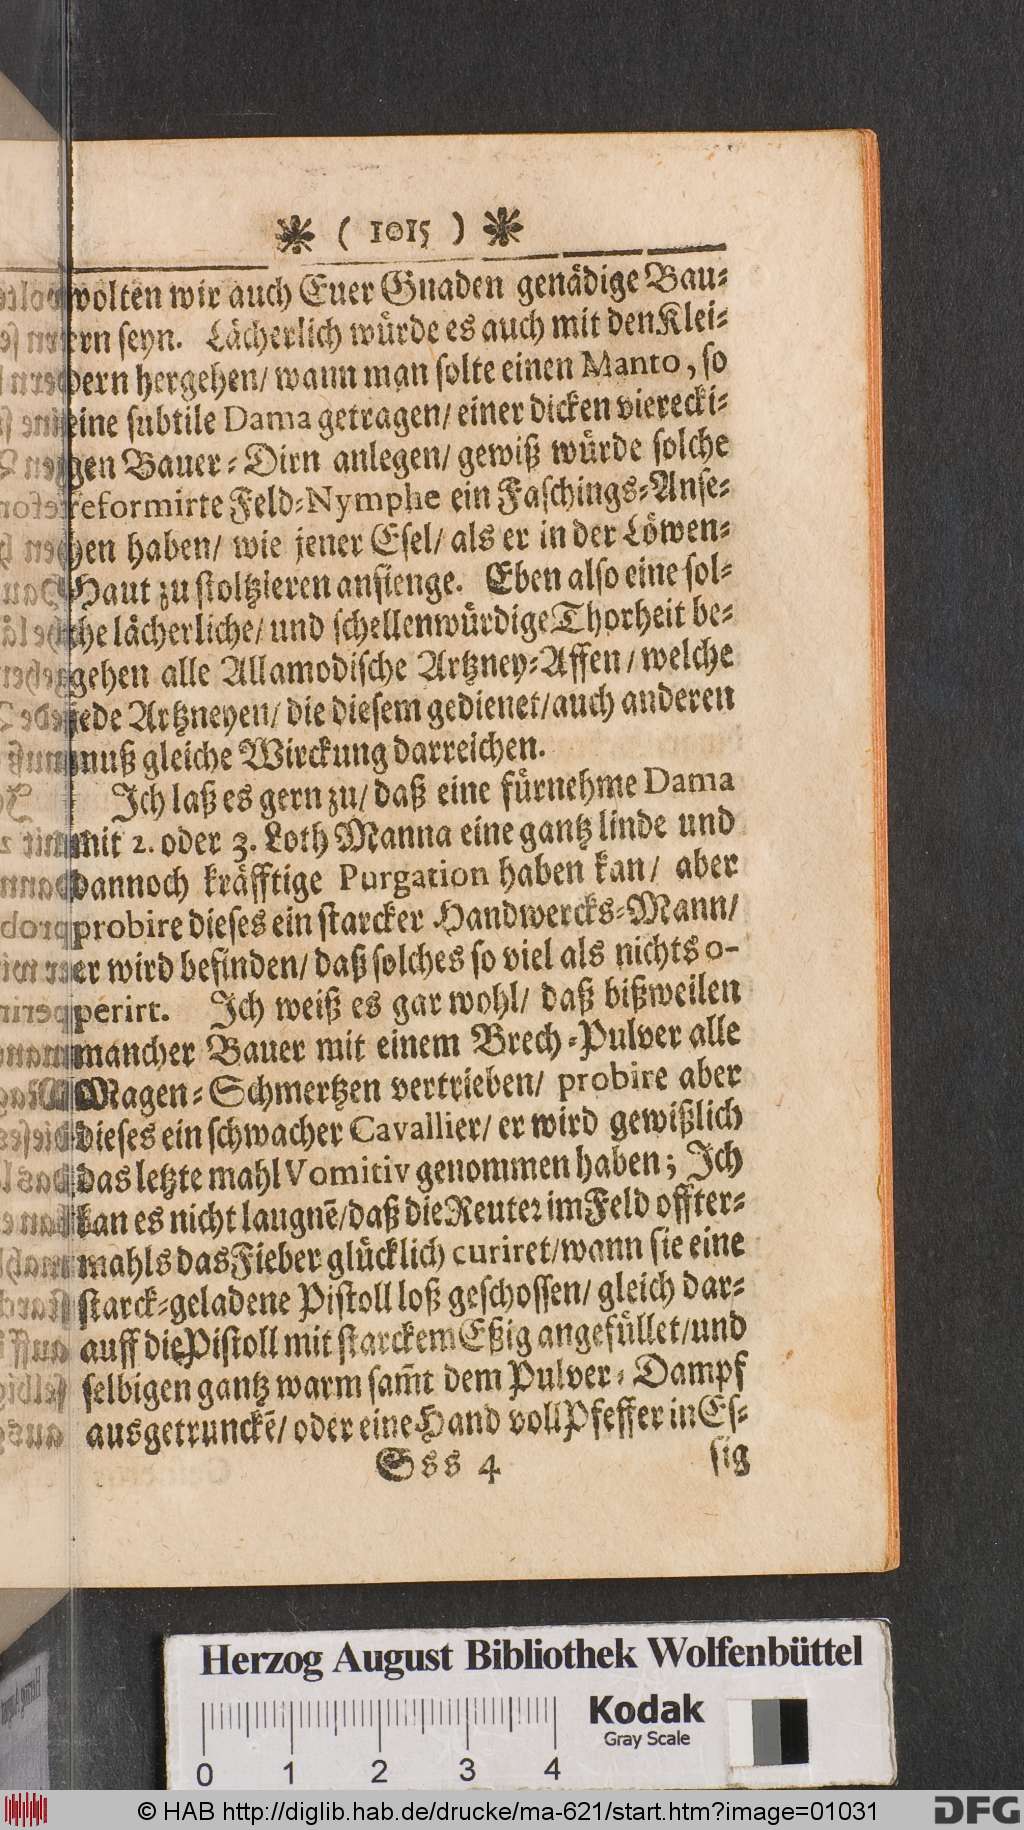 * ( 1015 ) *
wolten wir auch Euer Gnaden genädige Bau-
ern seyn. Lächerlich würde es auch mit den Klei-
dern hergehen/ wann man solte einen Manto, so
eine subtile Dama getragen/ einer dicken vierecki-
gen Bauer-Dirn anlegen/ gewiß würde solche
reformirte Feld-Nymphe ein Faschings-Anse-
hen haben/ wie jener Esel/ als er in der Löwen-
Haut zu stoltzieren anfienge. Eben also eine sol-
che lächerliche/ und schellenwürdige Thorheit be-
gehen alle Allamodische Artzney-Affen/ welche
jede Artzneyen/ die diesem gedienet/ auch anderen
muß gleiche Wirckung darreichen.
Ich laß es gern zu/ daß eine fürnehme Dama
mit 2. oder 3. Loth Manna eine gantz linde und
dannoch kräfftige Purgation haben kan/ aber
probire dieses ein starcker Handwercks-Mann/
er wird befinden/ daß solches so viel als nichts o-
perirt. Ich weiß es gar wohl/ daß bißweilen
mancher Bauer mit einem Brech-Pulver alle
Magen-Schmertzen vertrieben/ probire aber
dieses ein schwacher Cavallier/ er wird gewißlich
das letzte mahl Vomitiv genommen haben; Ich
kan es nicht laugnē/ daß die Reuter im Feld offter-
mahls das Fieber glücklich curiret/ wann sie eine
starck-geladene Pistoll loß geschossen/ gleich dar-
auff die Pistoll mit starckem Eßig angefüllet/ und
selbigen gantz warm sam̃t dem Pulver-Dampf
ausgetrunckē/ oder eine Hand voll Pfeffer in Es-
Sss 4 sig
Herzog August Bibliothek Wolfenbüttel
Kodak
Gray Scale
0 1 2 3 4
© HAB http://diglib.hab.de/drucke/ma-621/start.htm?image=01031
DFG